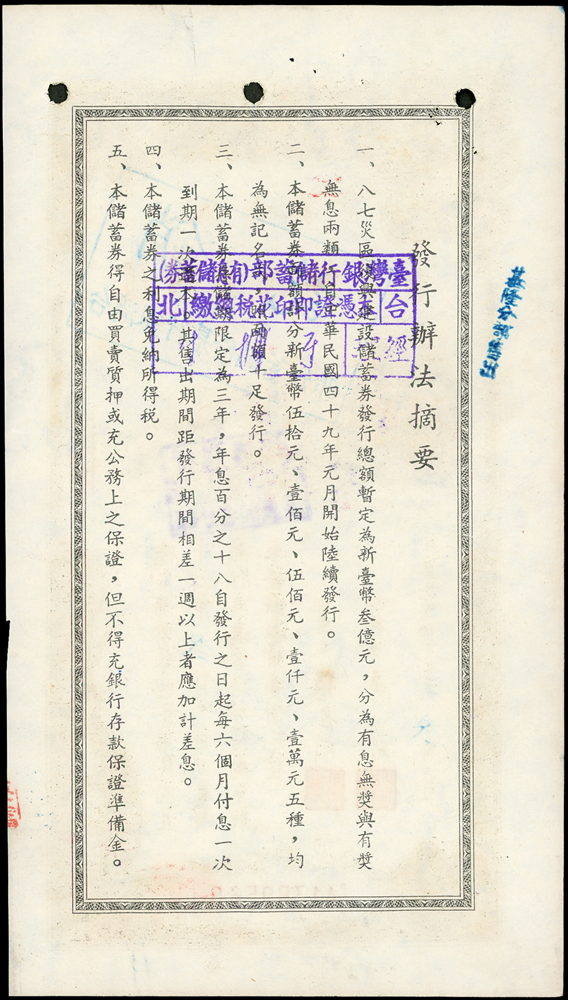 發行辦法摘要
一、八七災區復興建設儲蓄券發行總額暫定為新臺幣叁億元，分為有息無獎與有獎
無息兩類，自中華民國四十九年元月開始陸續發行。
二、本儲蓄券面額計分新臺幣伍拾元、壹佰元、伍佰元、壹仟元、壹萬元五種，均
為無記名式，照面額十足發行。
三、本儲蓄券存儲期限定為三年，年息百分之十八自發行之日起每六個月付息一次
到期一次還本。其售出期間距發行期間相差一週以上者應加計差息。
四、本儲蓄券之利息免納所得稅。
五、本儲蓄券得自由買賣質押或充公務上之保證，但不得充銀行存款保證準備金。
臺灣銀行儲蓄部(有息儲蓄券)
台北 憑證印花稅總繳
經